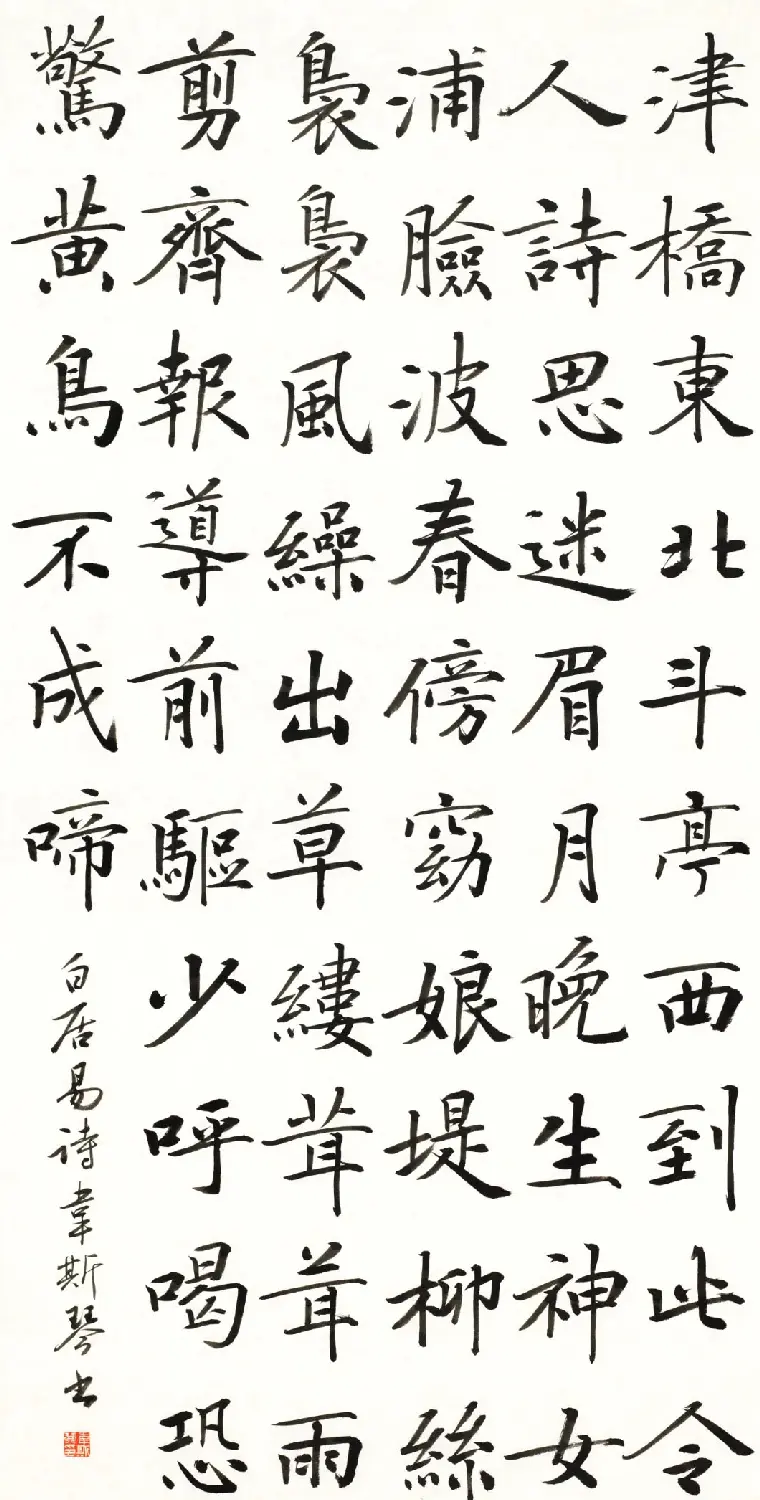 津橋東北斗亭西到此令
人詩思迷眉月晩生神女
浦臉波春傍窈娘堤柳絲
裊裊風繰出草縷茸茸雨
剪齊報導前驅少呼喝恐
驚黄鳥不成啼
白居易诗韋斯琴书